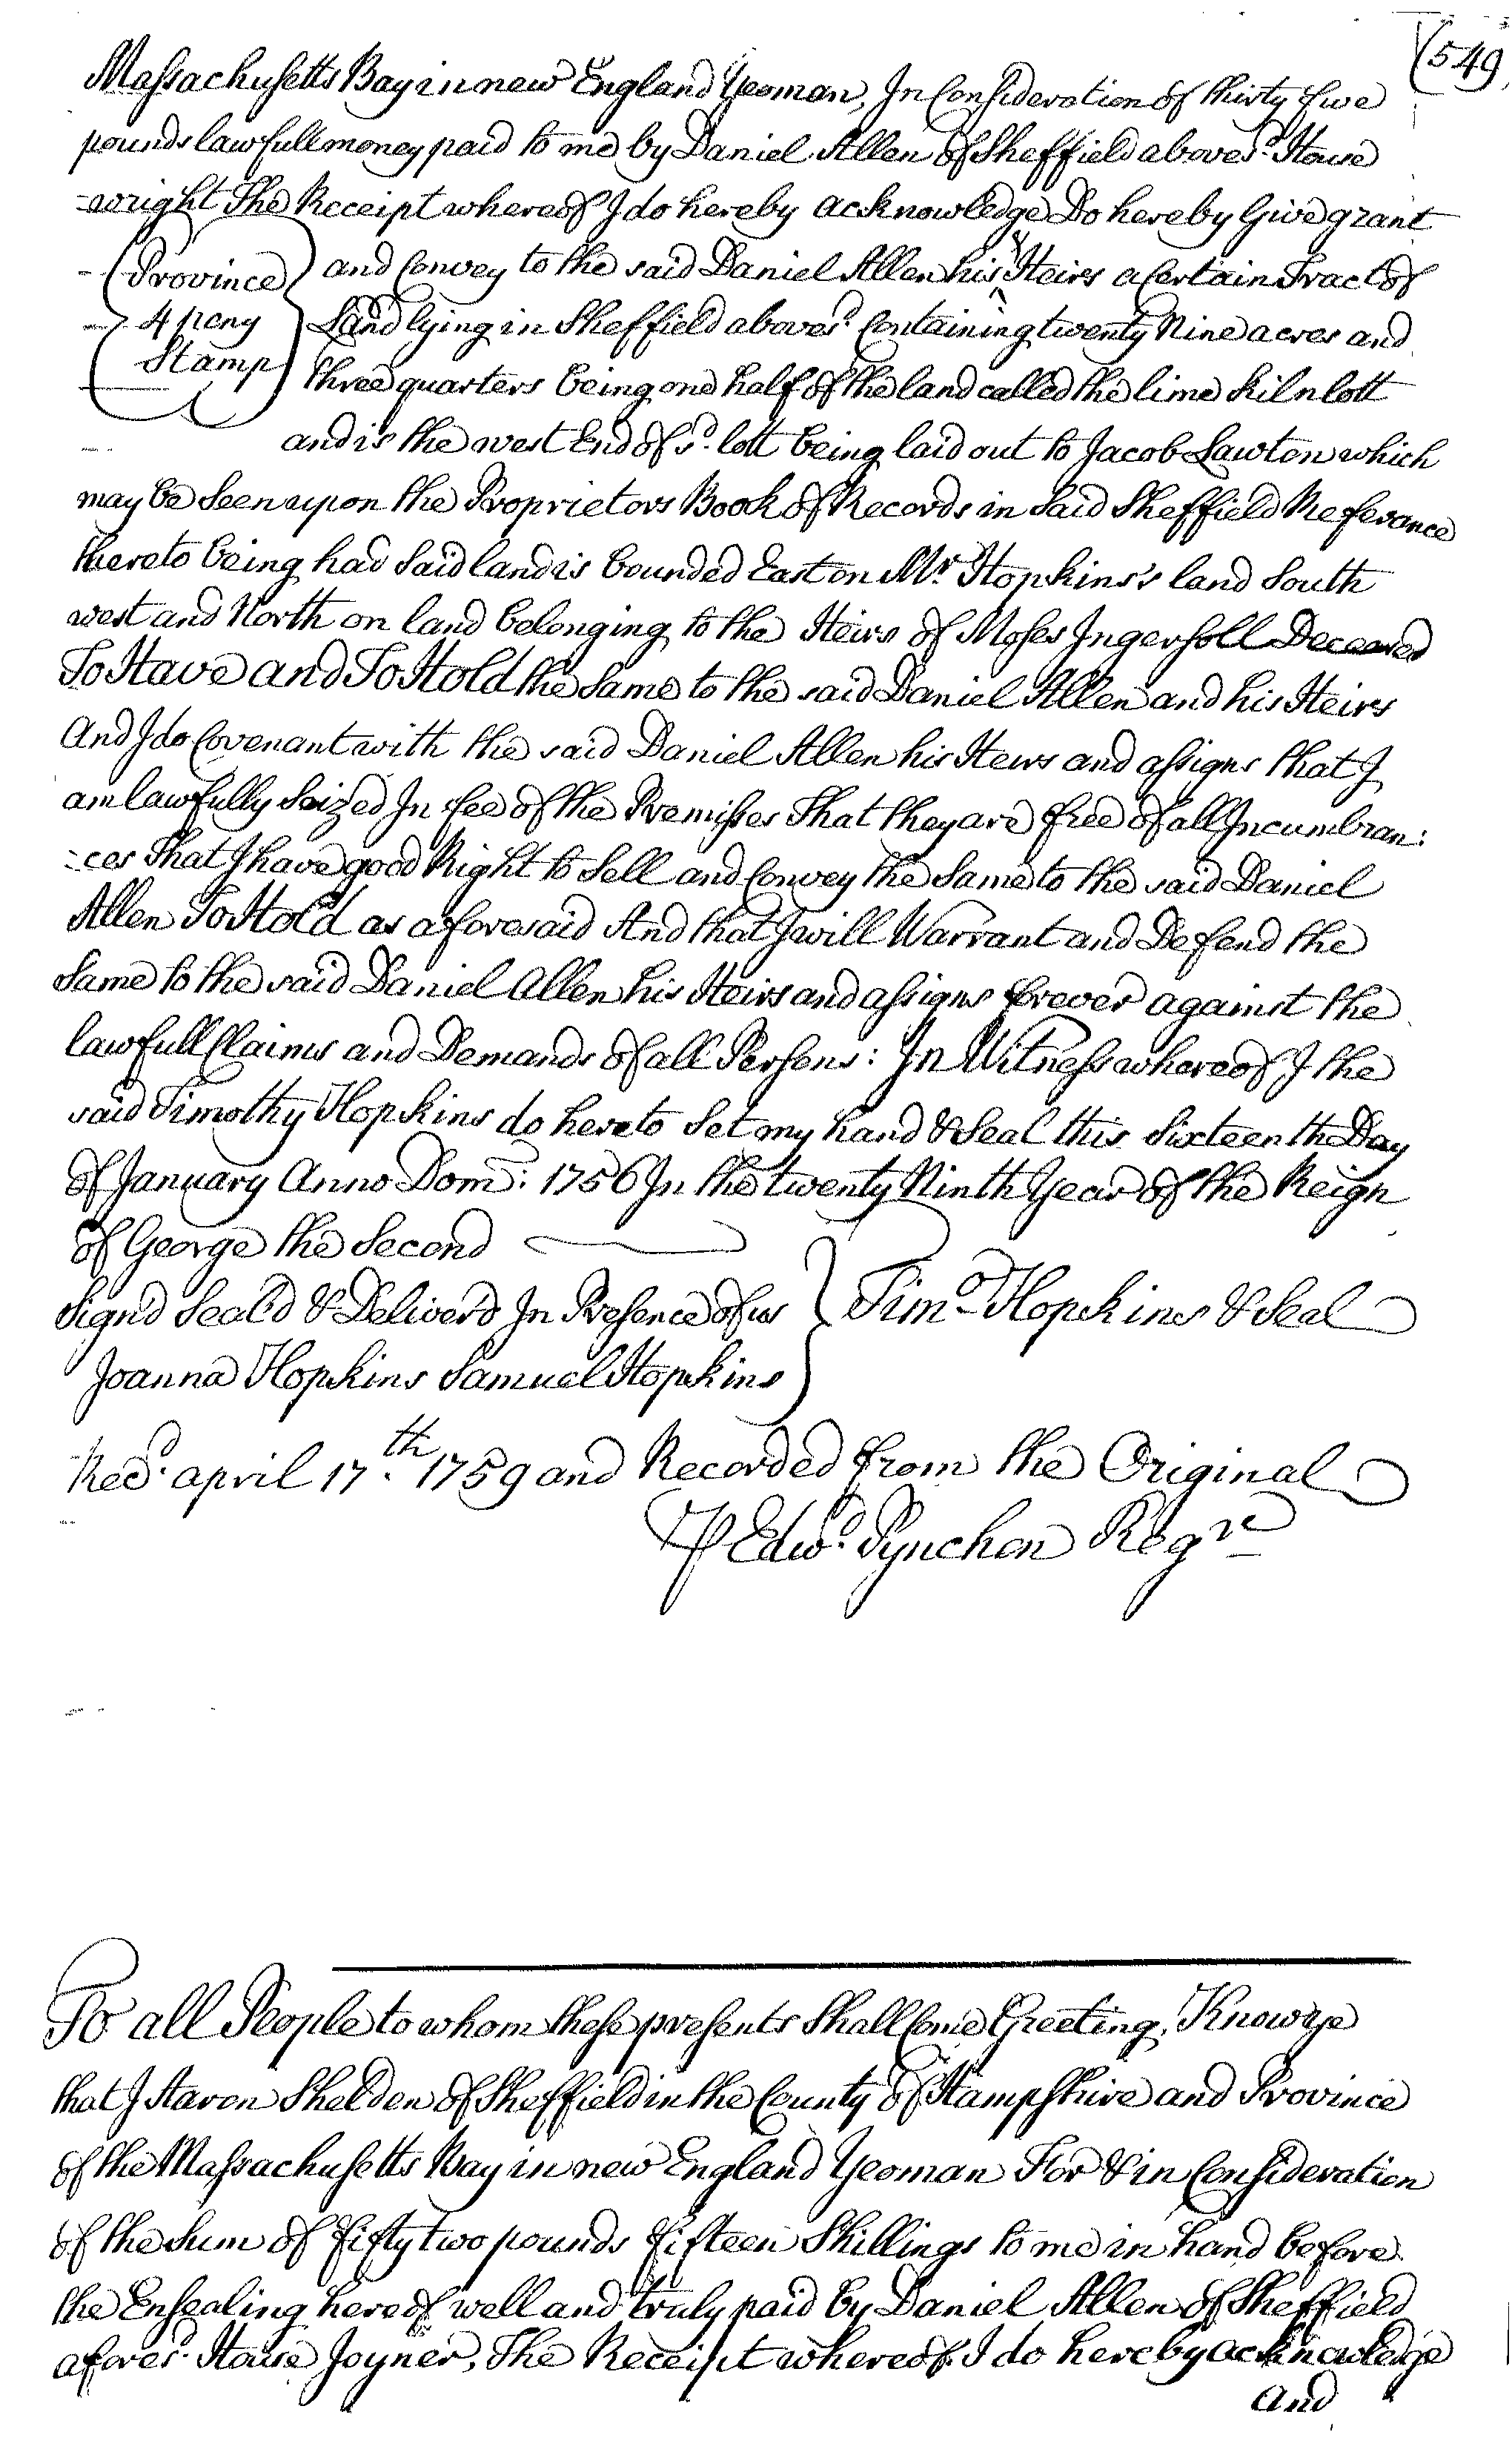 (549
Massachusetts Bay in new England Yeoman, In Consideration of thirty five
pounds lawfull money paid to me by Daniel Allen of Sheffield aboves.d House
-wright The Receipt whereof I do hereby acknowledge Do hereby Give grant
Province
4 peny
Stamp
and Convey to the said Daniel Allen his Heirs a Certain Tract of
Land lying in Sheffield aboves.d Containing twenty Nine acres and
three quarters being one half of the land called the lime kiln lott
and is the west End of s.d lott being laid out to Jacob Lawton which
may be Seen upon the Proprietors Book of Records in Said Sheffield Referance
thereto being had Said land is bounded East on Mr. Hopkins's land South
west and North on land belonging to the Heirs of Moses Ingersoll Deceased
To Have and To Hold the Same to the said Daniel Allen and his Heirs
And I do Covenant with the said Daniel Allen his Heirs and assigns that I
am lawfully Seized In fee of the Premisses That they are free of all Incumbran:
-ces That I have good Right to Sell and Convey the Same to the said Daniel
Allen To Hold as aforesaid And that I will Warrant and Defend the
Same to the said Daniel Allen his Heirs and assigns forever against the
lawfull Claims and Demands of all Persons: In Witness whereof I the
said Timothy Hopkins do hereto Set my hand & Seal this Sixteenth Day
of January Anno Dom: 1756 In the twenty Ninth Year of the Reign
of George the Second
Signd Seal'd & Deliverd In Presence of us } Timo Hopkins & Seal
Joanna Hopkins Samuel Hopkins
Recd. april 17.th 1759 and Recorded from the Original
⅌ Edwd. Pynchon Regr
To all People to whom these presents Shall Come Greeting, Know ye
that I Aaron Shelden of Sheffield in the County of Hampshire and Province
of the Massachusetts Bay in new England Yeoman For & in Consideration
of the Sum of fifty two pounds fifteen Shillings to me in hand before
the Ensealing hereof well and truly paid by Daniel Allen of Sheffield
afores.d House Joyner, The Receipt whereof I do hereby acknowledge
And